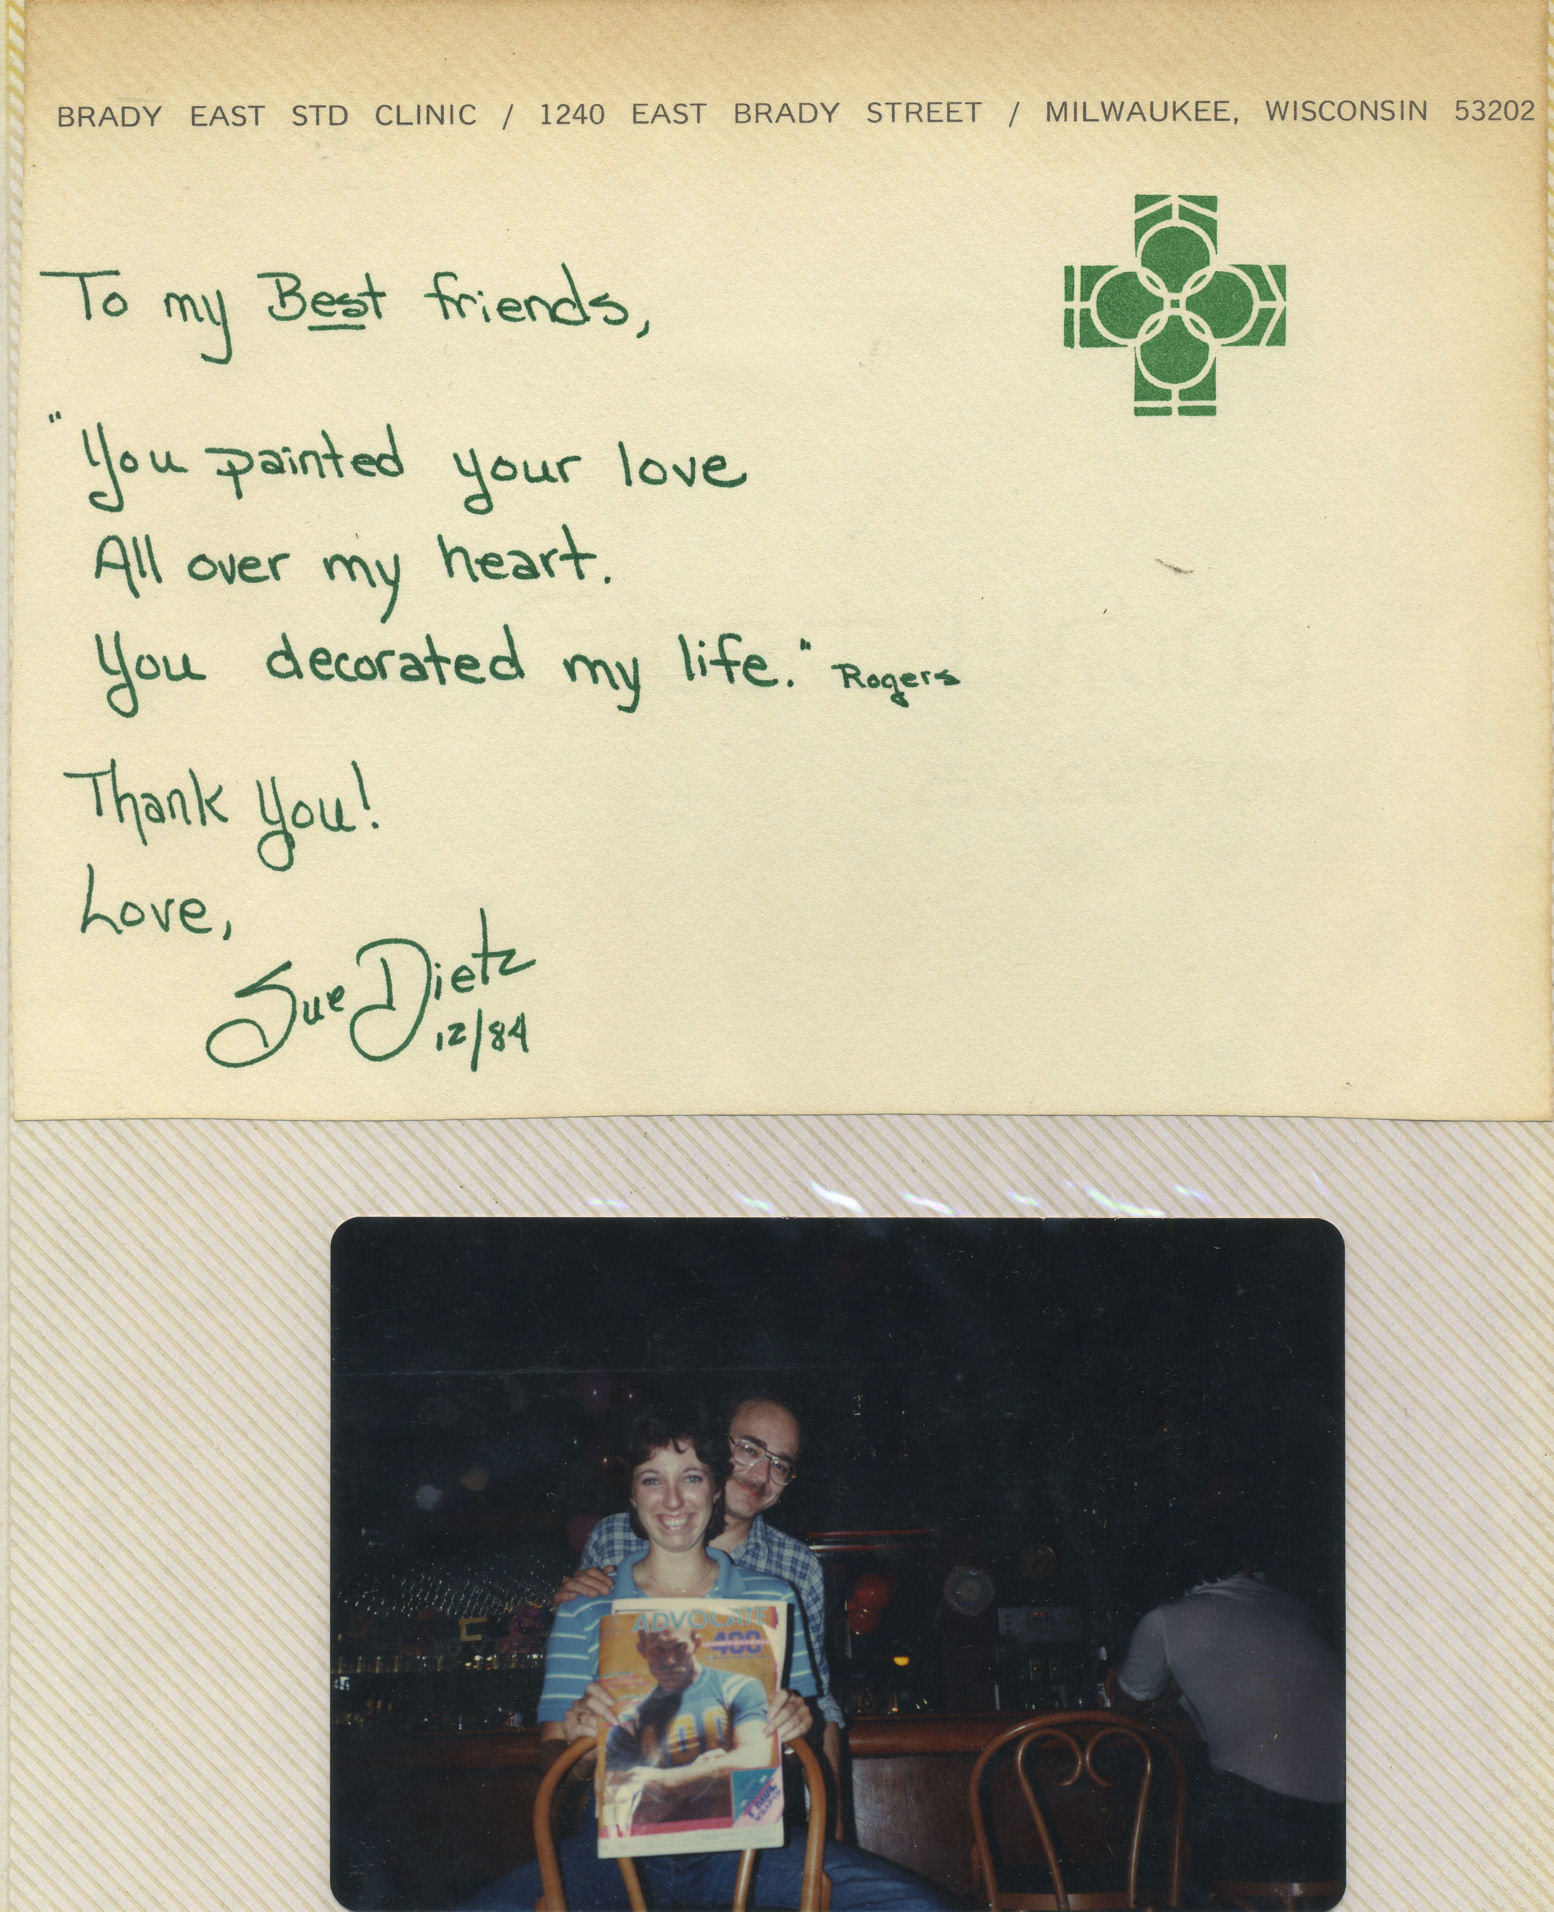 BRADY EAST STD CLINIC / 1240 EAST BRADY STREET / MILWAUKEE, WISCONSIN 53202
To my Best friends,
"You painted your love
All over my heart.
You decorated my life." Rogers
Thank You!
Love,
Sue Dietz
12/84
ADVOCATE
400
400